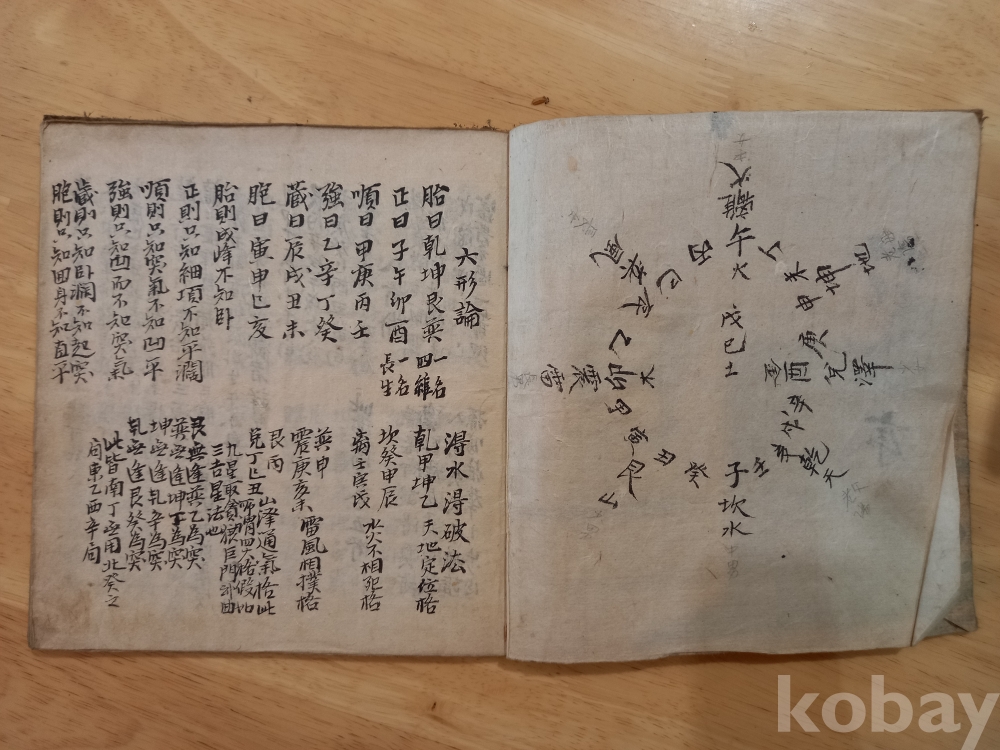 六形論
胎曰乾坤艮巽 一名四維
正曰子午卯酉 一名長生
順曰甲庚丙壬
強曰乙辛丁癸
藏曰辰戌丑未
胞曰寅申巳亥
胎則成峰不知卧
正則只知細項不知平濶
順則只知突氣不知凹平
強則只知凹而不知突氣
藏則只知卧濶不知起突
胞則只知回身不知直平
淂水淂破法
乾甲坤乙 天地定位格
坎癸申辰
离壬寅戌 水火不相犯格
震庚亥未 雷風相撲格
巽申
艮丙
兌丁巳丑 山澤通氣格此
所謂四大格假如
九星取貪狼巨門
三吉星法也
艮 逢巽乙為突
巽 逢坤丁為突
坤 逢乹辛為突
乹 逢艮癸為突
此皆南丁 用北癸之
局東乙西辛局
離火
午火
丁
未
坤地
申
庚
酉
兌澤
辛
戌
乾天
亥
壬
子坎水
癸
丑
艮山
寅
甲
卯木
震雷
乙
辰
巽風
巳
丙
戊己土
kobay